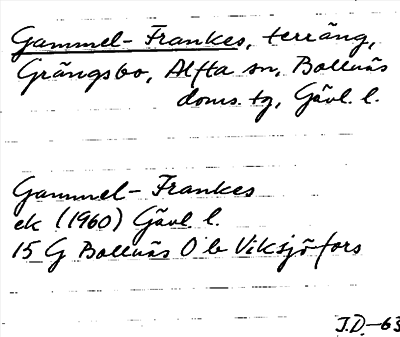 Gammel-Frankes, terräng,
Grängsbo, Alfta sn, Bollnäs
doms. tg, Gävl. l.
Gammel-Frankes
ek (1960) Gävl l.
15 G Bollnäs O b Viksjöfors
J.D.-63